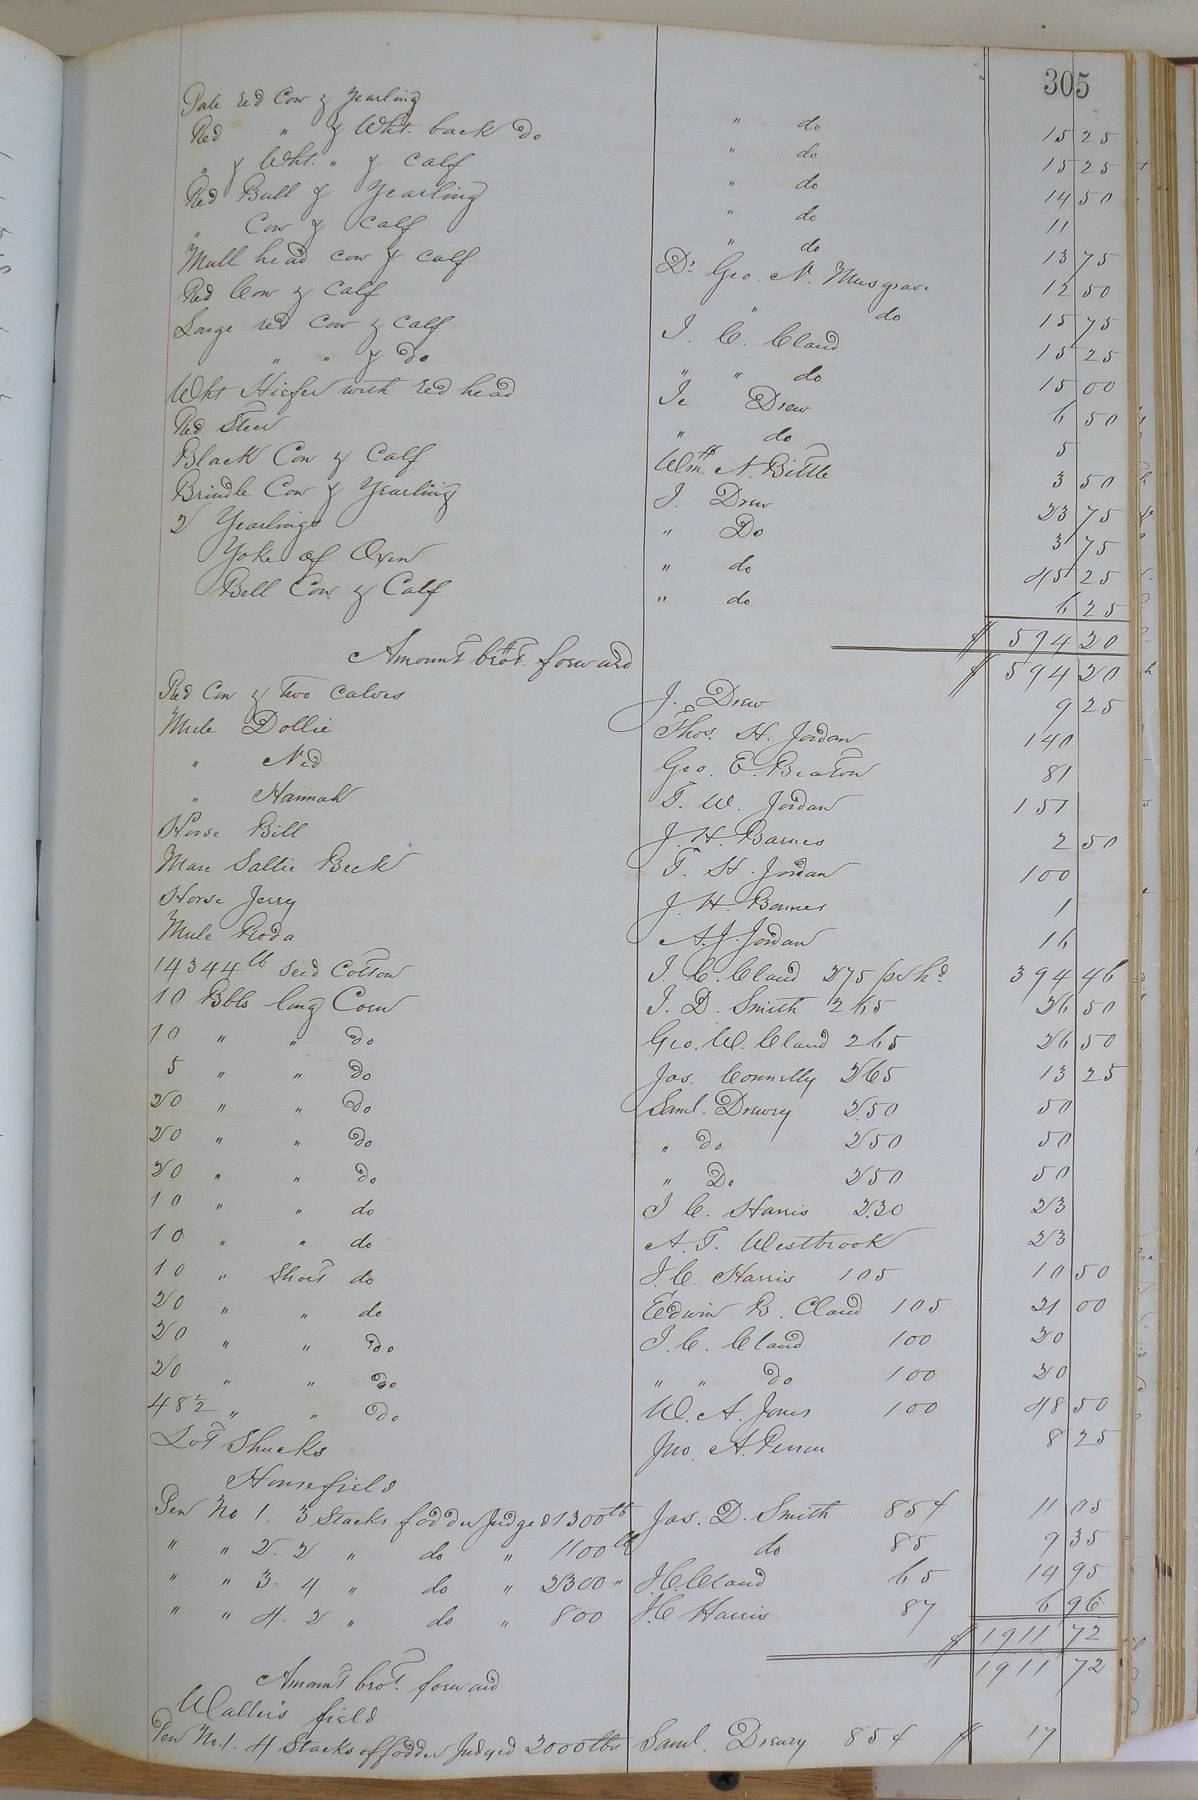 305
Pale red Cow & Yearling " do 15 25
Red " & Wht. back do " do 15 25
" & Wht. " & Calf " do 14 50
Red Bull & Yearling " do 11
" Cow & Calf " do 13 75
Mull head cow & calf Dr Geo. N. Musgrave 12 50
Red Cow & Calf " do 15 75
Large red cow & calf J. C. Claud 15 25
" " & do " " do 15 00
Wht Hiefer with red head Drew 6 50
Red Steer " do 5
Black Cow & Calf Wm. N. Bittle 3 50
Brindle Cow & Yearling J. Drew 23 75
2 Yearlings " Do 3 75
Yoke of Oxen " do 45 25
Bell Cow & Calf " do 6 25
$ 594 20
Amount brot. forward $ 594 20
Red Cow & Two Calves J. Drew 9 25
Mule Dollie Thos. H. Jordan 140
" Ned Geo. E. Beaton 81
" Hannah T. W. Jordan 151
Horse Bill J. H. Barnes 2 50
Mare Sallie Beck T. H. Jordan 100
Horse Jerry J. H. Barnes 1
Mule Roda A. J. Jordan 16
14344 lb Seed Cotton J. C. Claud 275 pr hd 394 46
10 Bbls long Corn J. D. Smith 265 26 50
10 " " do Geo. W. Claud 265 26 50
5 " " do Jas. Connelly 265 13 25
20 " " do Saml. Drewry 250 50
20 " " do " do 250 50
20 " " do " Do 250 50
10 " " do J. C. Harris 2.30 23
10 " " do A. T. Westbrook 23
10 " Short do J. C. Harris 105 10 50
20 " " do Edwin B. Claud 105 21 00
20 " " do J. C. Claud 100 20
20 " " do " " do 100 20
48 1/2 " " do W. A. Jones 100 48 50
Lot Shucks Jno. A. Person 8 25
Housefield
Pen No 1. 3 Stacks fodder Judged 1300 lb Jas. D. Smith 85 ¢ 11 05
" " 2. 2 " do " 1100 lb do 85 9 35
" " 3. 4 " do " 2300 " J. C. Claud 65 14 95
" " 4. 2 " do " 800 J. C. Harris 87 6 96
$ 1911 72
Amount brot. forward 1911 72
Waller's field
Pen No. 1. 4 Stacks of fodder Judged 2000 lbs Saml. Drewry 85 ¢ $ 17